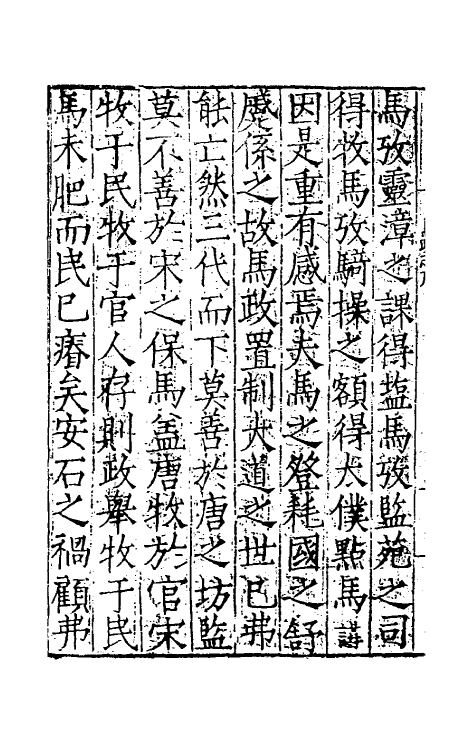 馬攷靈漳之課得鹽馬攷監苑之司
得牧馬攷騎操之額得犬僕點馬講
因是重有感焉夫馬之登耗國之舒
蹙係之故馬政置制大道之世已弗
能亡然三代而下莫善於唐之坊監
莫不善於宋之保馬盖唐牧於官宋
牧于民牧于官人存則政舉牧于民
馬未肥而民已瘠矣安石之禍顧弗